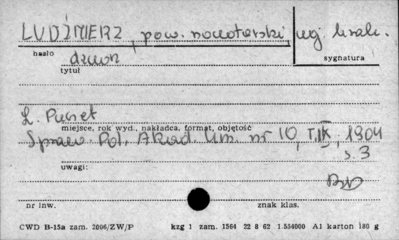 LUDŹMIERZ, pow. nowotarski, woj. krak.
hasło
sygnatura
dzwon
tytuł
L. Puszet
miejsce, rok wyd., nakładca, format, objętość
Spraw. Pol. Akad. Um. nr 10, T.IX, 1904
s. 3
uwagi:
nr inw.
znak klas.
CWD B-15a zam. 2006/ZW/P kzg 1 zam. 1564 22 8 62 1.554000 A1 karton 180 g